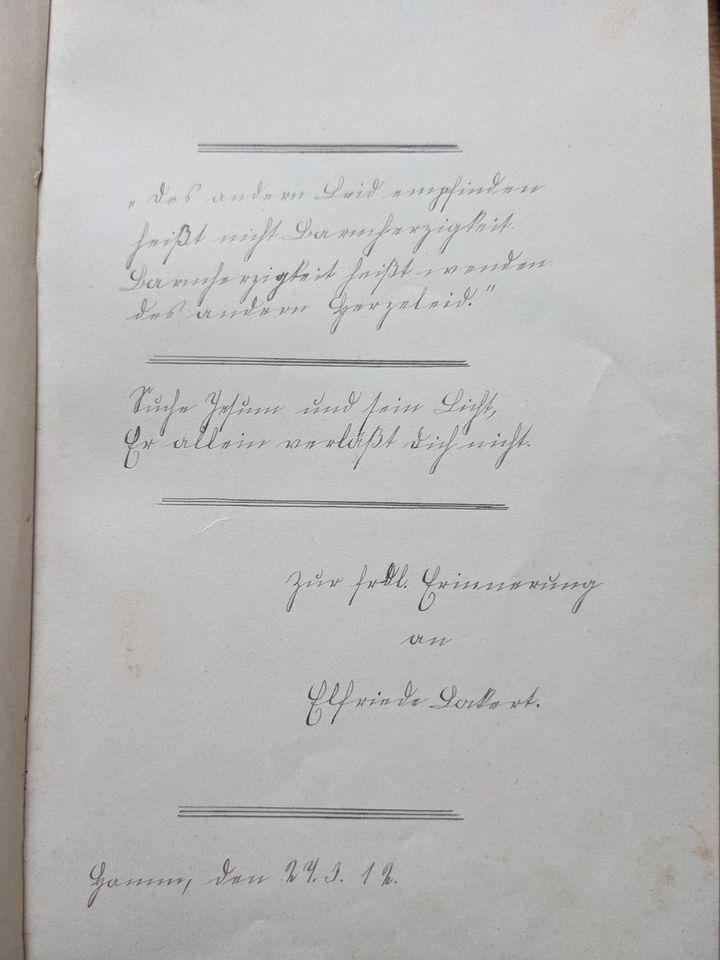 „Des andern Leid empfinden
heißt nicht Barmherzigkeit.
Barmherzigkeit heißt wenden
des andern Herzeleid."
Suche Jesum und sein Licht,
Er allein verläßt Dich nicht.
Zur frdl. Erinnerung
an
Elfriede
Hamm, den